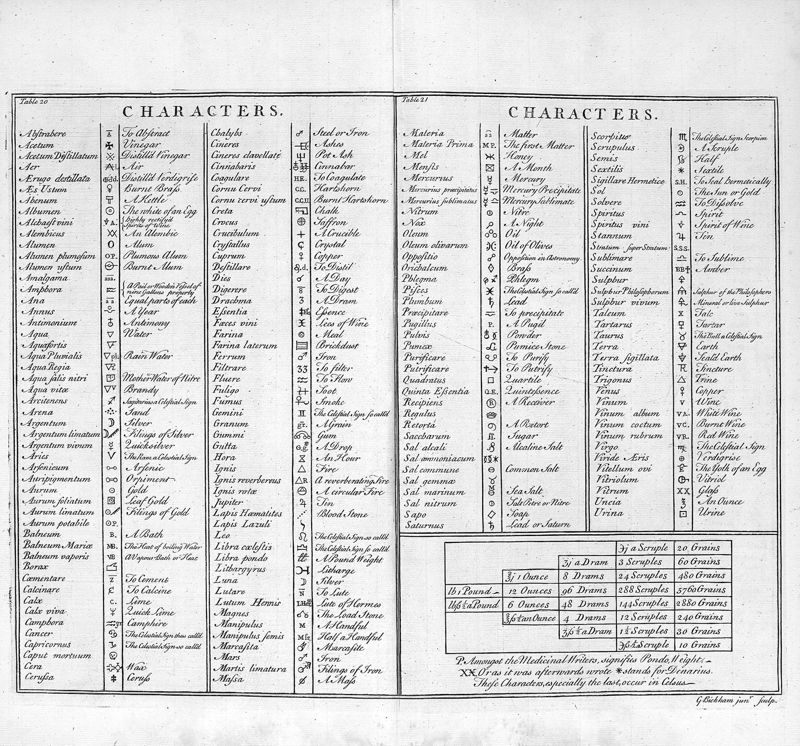 Table 20
CHARACTERS.
Abstrahere To Abstract
Acetum Vinegar
Acetum Distillatum Distill'd Vinegar
Aer Air
Ærugo destillata Distill'd Verdigrise
Æs Ustum Burnt Brass
Ahenum A Kettle
Albumen The white of an Egg
Alcohol vini A. highly rectified Spirits of Wine
Alembicus XX An Alembic
Alumen Alum
Alumen plumosum O.P. Plumous Alum
Alumen ustum Burnt Alum
Amalgama aaa.
Amphora A Pail or Wooden Vessel of nine Gallons properly
Ana Equal parts of each
Annus A Year
Antimonium Antimony
Aqua Water
Aquafortis
Aqua Pluvialis Rain Water
Aqua Regia
Aqua salis nitri Mother Water of Nitre
Aqua vitæ Brandy
Arcitenens Sagittarius a Celestial Sign
Arena Sand
Argentum Silver
Argentum limatum Filings of Silver
Argentum vivum Quicksilver
Aries The Ram a Celestial Sign
Arsenicum Arsenic
Auripigmentum Orpiment
Aurum Gold
Aurum foliatum Leaf Gold
Aurum limatum Filings of Gold
Aurum potabile P.
Balneum B. A Bath
Balneum Mariæ MB. The Heat of boiling Water
Balneum vaporis VB. A Vapour Bath or Heat
Borax
Cæmentare To Cement
Calcinare C To Calcine
Calx C. Lime
Calx viva Quick Lime
Camphora Camphire
Cancer The Celestial Sign thus call'd
Capricornus The Celestial Sign so call'd
Caput mortuum
Cera Wax
Cerussa Ceruss
Chalybs Steel or Iron
Cineres Ashes
Cineres clavellati Pot Ash
Cinnabaris Cinnabar
Coagulare H.E. To Coagulate
Cornu Cervi C.C. Hartshorn
Cornu cervi ustum C.C.U. Burnt Hartshorn
Creta Chalk
Crocus Saffron
Crucibulum A Crucible
Crystallus Crystal
Cuprum Copper
Destillare To Distil
Dies A Day
Digerere To Digest
Drachma A Dram
Essentia Essence
Fæces vini Lees of Wine
Farina Meal
Farina laterum Brickdust
Ferrum Iron
Filtrare 33 To filter
Fluere To Flow
Fuligo Soot
Fumus Smoke
Gemini The Celestial Sign so call'd
Granum A Grain
Gummi Gum
Gutta A Drop
Hora An Hour
Ignis Fire
Ignis reverbereus R A reverberating Fire
Ignis rotæ A circular Fire
Jupiter Tin
Lapis Hæmatites Blood Stone
Lapis Lazuli
Leo The Celestial Sign so call'd
Libra cælestis The Celestial Sign so call'd
Libra pondo A Pound Weight
Lithargyrus Litharge
Luna Silver
Lutare To Lute
Lutum Hermis Lute of Hermes
Magnes The Load Stone
Manipulus M. A Handful
Manipulus semis Half a Handful
Marcasita Marcasite
Mars Iron
Martis limatura Filings of Iron
Massa A Mass
Table 21
CHARACTERS.
Materia Matter
Materia Prima MP. The first Matter
Mel Honey
Mensis A Month
Mercurius Mercury
Mercurius præcipitatus Mercury Precipitate
Mercurius sublimatus Mercury Sublimate
Nitrum Nitre
Nox A Night
Oleum Oil
Oleum olivarum Oil of Olives
Oppositio Opposition in Astronomy
Orichalcum Brass
Phlegma Phlegm
Pisces The Celestial Sign so call'd
Plumbum Lead
Præcipitare To precipitate
Pugillus P. A Pugil
Pulvis Powder
Pumex Pumice Stone
Purificare To Purify
Putrificare To Putrify
Quadratus Quartile
Quinta Essentia Q.E. Quintessence
Recipiens A Receiver
Regulus
Retorta A Retort
Saccharum Sugar
Sal alcali Alcaline Salt
Sal ammoniacum
Sal commune Common Salt
Sal gemmæ
Sal marinum Sea Salt
Sal nitrum Salt Petre or Nitre
Sapo Soap
Saturnus Lead or Saturn
Scorpius The Celestial Sign Scorpion
Scrupulus A Scruple
Semis Half
Sextilis Sextile
Sigillare Hermetice S.H. To Seal hermetically
Sol The Sun or Gold
Solvere To Dissolve
Spiritus Spirit
Spiritus vini Spirit of Wine
Stannum Tin
Stratum super Stratum S.S.S.
Sublimare To Sublime
Succinum Amber
Sulphur
Sulphur Philosophorum Sulphur of the Philosophers
Sulphur vivum Mineral or live Sulphur
Talcum X Talc
Tartarus Tartar
Taurus The Bull a Celestial Sign
Terra Earth
Terra sigillata Seal'd Earth
Tinctura Tincture
Trigonus Trine
Venus Copper
Vinum V Wine
Vinum album V.A. White Wine
Vinum coctum VC. Burnt Wine
Vinum rubrum VR. Red Wine
Virgo The Celestial Sign
Viride Æris Verdigrise
Vitellum ovi The Yolk of an Egg
Vitriolum Vitriol
Vitrum XX Glass
Uncia An Ounce
Urina Urine
℈j a Scruple 20 Grains
ʒj a Dram 3 Scruples 60 Grains
℥j 1 Ounce 8 Drams 24 Scruples 480 Grains
lb 1 Pound 12 Ounces 96 Drams 288 Scruples 5760 Grains
lbſs ½ a Pound 6 Ounces 48 Drams 144 Scruples 2880 Grains
℥ſs ½ an Ounce 4 Drams 12 Scruples 240 Grains
ʒſs ½ a Dram 1½ Scruples 30 Grains
℈ſs ½ Scruple 10 Grains
P. Amongst the Medicinal Writers, signifies Pondo, Weight;
XX. Or as it was afterwards wrote * stands for Denarius.
These Characters, especially the last, occur in Celsus
G Bickham junr. sculp.